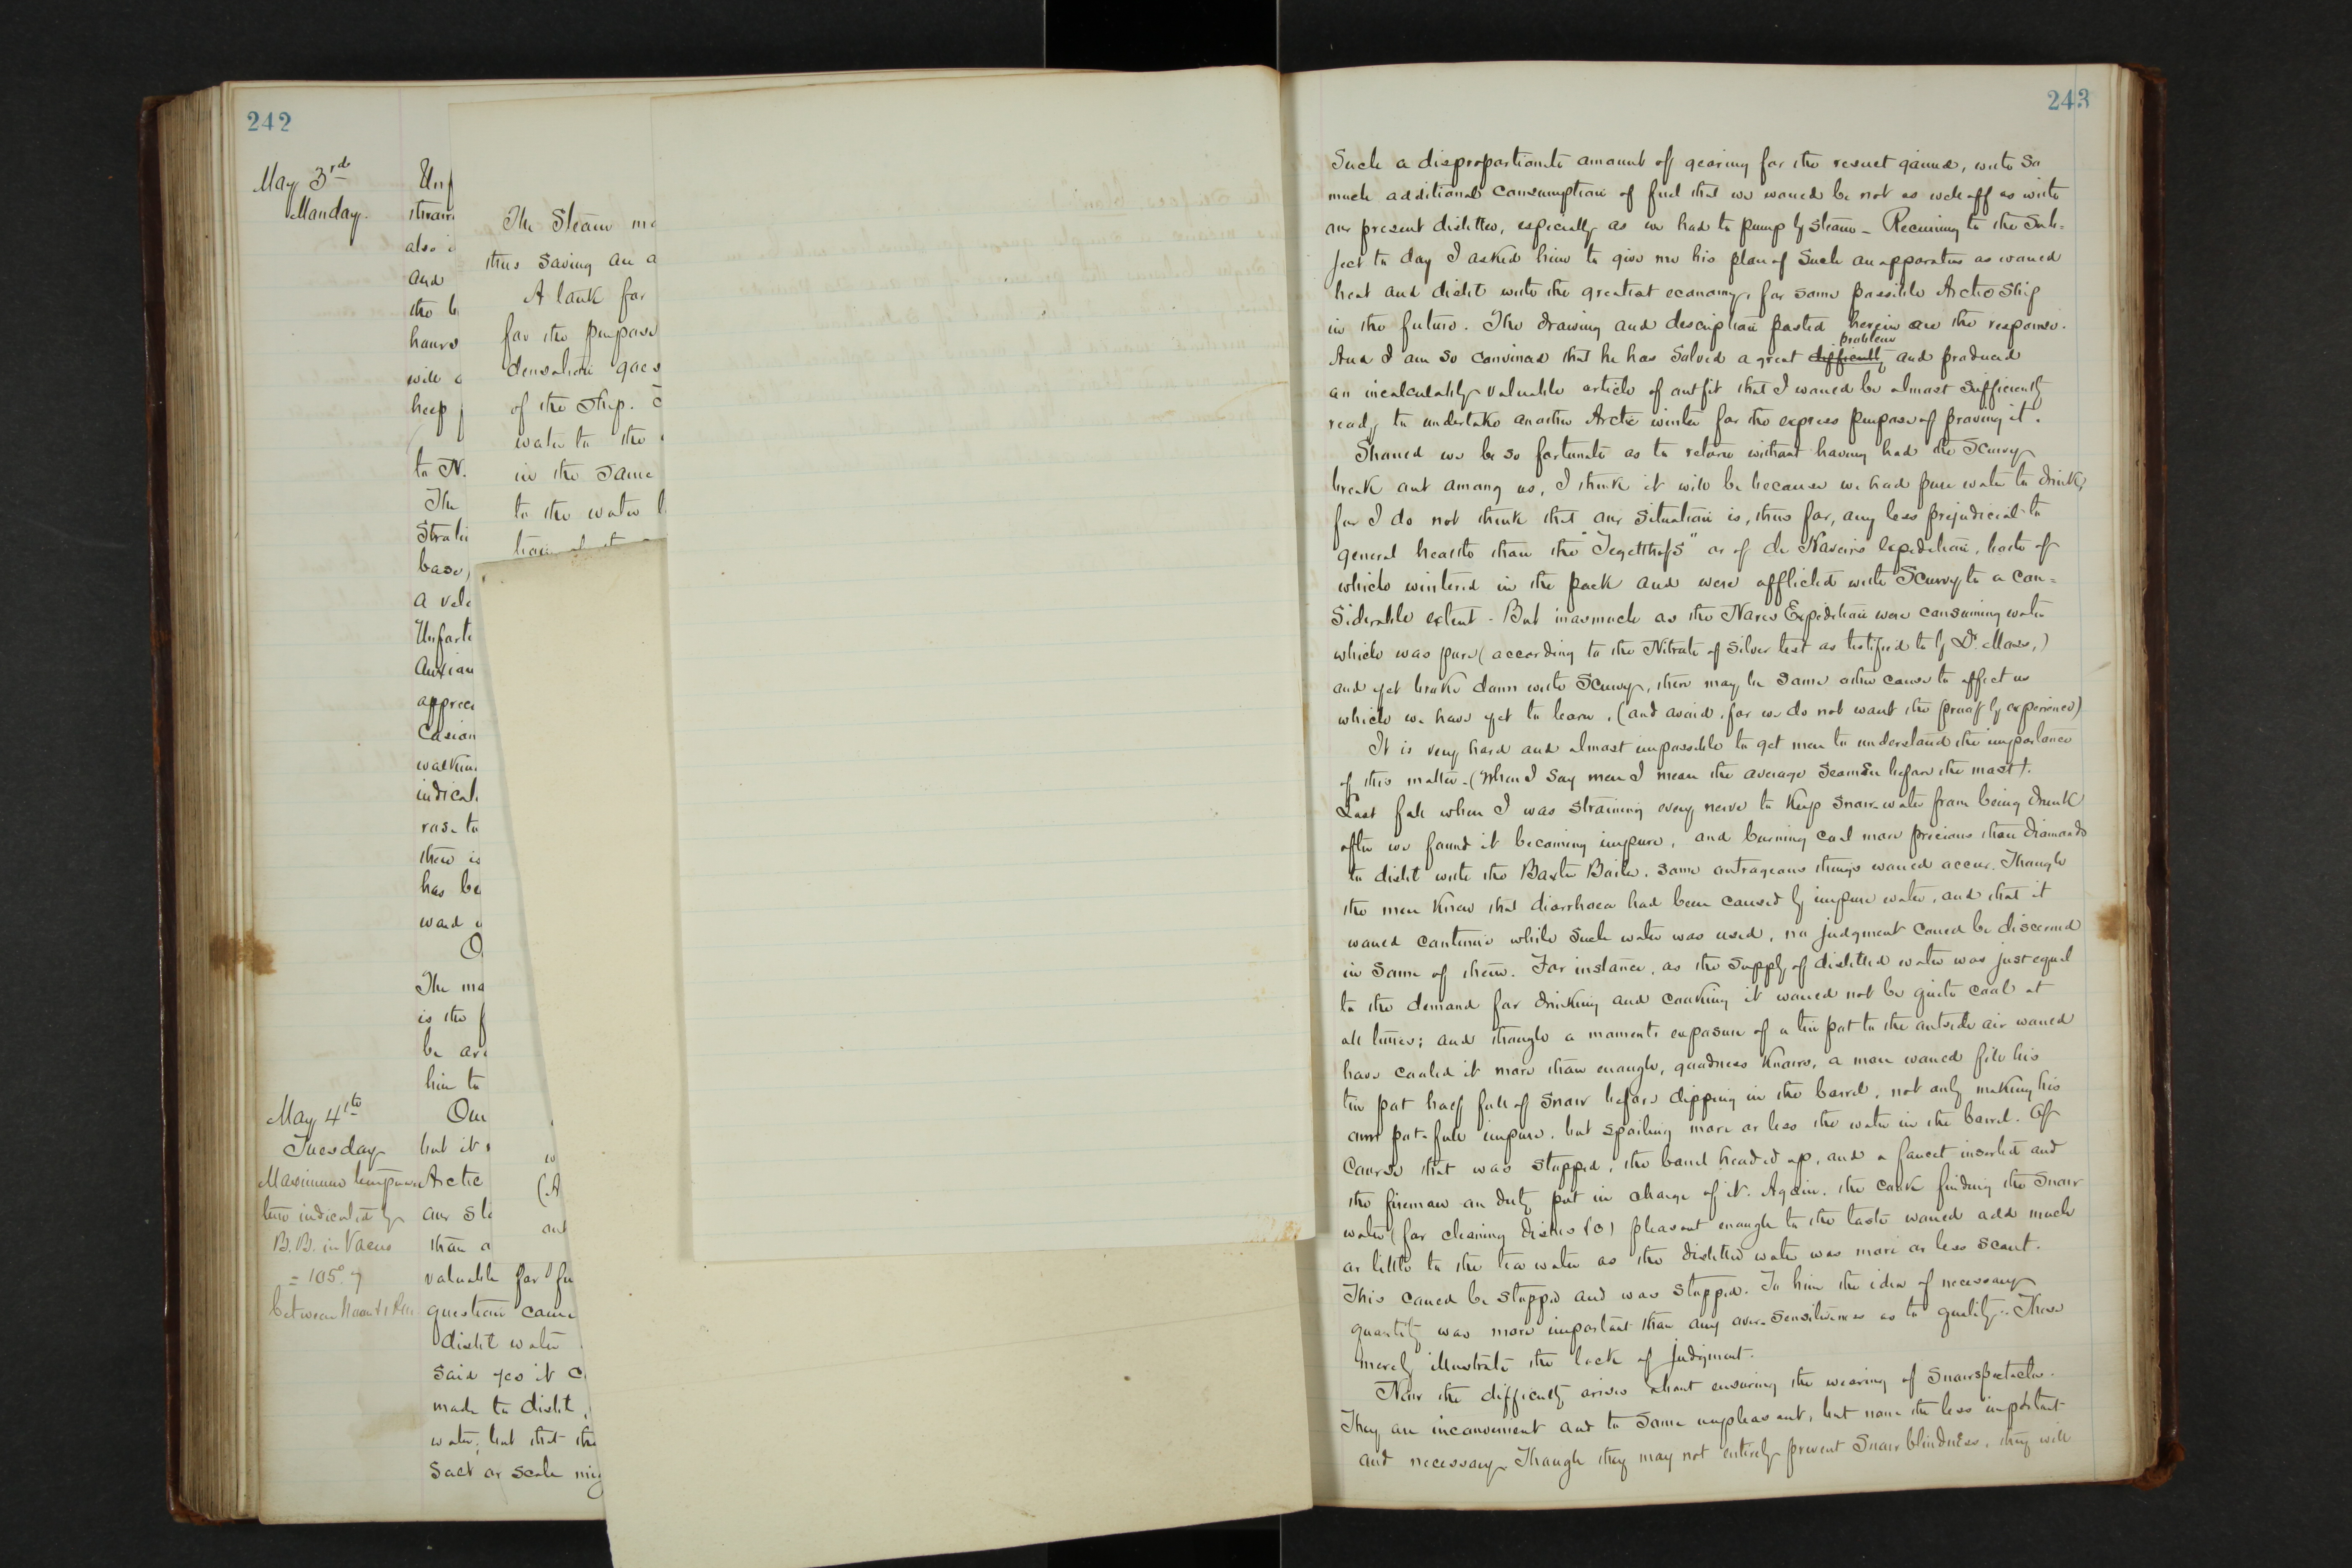 242
May 3rd
Monday.
Unf
strain
also i
and
the b
hours
will
keep
to N.
The
Strati
base,
a velo
Unfort
anxiou
apprec
casion
walkin
indicat
rose to
there is
has be
ward
O
The ma
is the f
be ar
him to
May 4th
Tuesday
Maximum tempera
ture indicated by
B.B. in Vacuo
= 105°.7
between Noon &
Our
but it
Arctic
our sl
than a
valuable for fu
question came
distil water
said yes it c
made to distil,
water, but that the
salt or scale mig
The Steam ma
thus saving an a
A tank for
for the purpose
densation goes
of the ship.
water to the
in the same
to the water
w
(A
and
243
Such a disproportionate amount of gearing for the result gained, with so
much additional consumption of fuel that we would be not as well off as with
our present distiller, especially as we had to pump by steam - Recurring to the Sub=
ject to day I asked him to give me his plan of such an apparatus as would
heat and distil with the greatest economy, for some possible Arctic Ship
in the future. The drawing and description pasted herein are the response.
And I am so convinced that he has solved a great difficulty problem and produced
an incalculably valuable article of outfit that I would be almost sufficiently
ready to undertake another Arctic winter for the express purpose of proving it.
Should we be so fortunate as to return without having had the Scurvy
break out among us, I think it will be because we had pure water to drink,
for I do not think that our situation is, thus far, any less prejudicial to
general health than the "Tegetthoff's" or of the Nares's Expedition, both of
which wintered in the pack and were afflicted with Scurvy to a con=
siderable extent. But inasmuch as the Nares Expedition were consuming water
which was pure (according to the Nitrate of Silver test as testified to by Dr. Moss,)
and yet broke down with Scurvy, there may be some other cause to affect us
which we have yet to learn, (and avoid, for we do not want the proof by experience)
It is very hard and almost impossible to get men to understand the importance
of this matter. (When I say men I mean the average Seaman before the mast).
Last fall when I was straining every nerve to keep snow-water from being drunk
after we found it becoming impure, and burning coal more precious than diamonds
to distil with the Baxter Boiler, some outrageous things would occur. Though
the men knew that diarrhoea had been caused by impure water, and that it
would continue while such water was used, no judgment could be discerned
in some of them. For instance, as the supply of distilled water was just equal
to the demand for drinking and cooking it would not be quite cool at
all times; and though a moments exposure of a tin pot to the outside air would
have cooled it more than enough, goodness knows, a man would fill his
tin pot half full of snow before dipping in the barrel, not only making his
own pot-full impure, but spoiling more or less the water in the barrel. Of
course that was stopped, the barrel headed up, and a faucet inserted and
the fireman on duty put in charge of it. Again, the cook finding the snow
water (for cleaning dishes &c) pleasant enough to the taste would add much
or little to the tea water as the distilled water was more or less scant.
This could be stopped and was stopped. To him the idea of necessary
quantity was more important than any over-sensitiveness as to quality. These
merely illustrate the lack of judgment.
Now the difficulty arises about ensuring the wearing of snow spectacles.
They are inconvenient and to some unpleasant, but none the less important
and necessary. Though they may not entirely prevent Snow blindness, they will